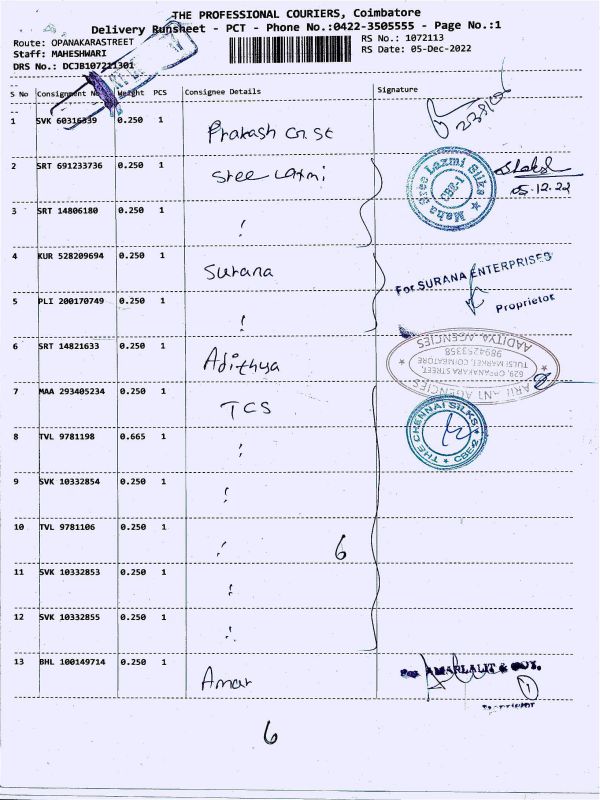 THE PROFESSIONAL COURIERS, Coimbatore
Delivery Runsheet - PCT - Phone No.:0422-3505555 - Page No.:1
Route: OPANAKARASTREET
RS No.: 1072113
Staff: MAHESHWARI
RS Date: 05-Dec-2022
DRS No.: DCJB107211301
S No Consignment No Weight PCS Consignee Details Signature
1 SVK 60316339 0.250 1 Prakash
2 SRT 691233736 0.250 1 Sree Laxmi
Maha Sree Laxmi Silks ★ CBE-1
05.12.22
3 SRT 14806180 0.250 1
4 KUR 528209694 0.250 1 Surana
For SURANA ENTERPRISES
Proprietor
5 PLI 200170749 0.250 1
6 SRT 14821633 0.250 1 Adithya
AADITYA AGENCIES
629, OPPANAKARA STREET,
TULSI MARKET, COIMBATORE
9894253358
7 MAA 293405234 0.250 1 TCS
THE CHENNAI SILKS ★ CBE-2 ★
8 TVL 9781198 0.665 1
9 SVK 10332854 0.250 1
10 TVL 9781106 0.250 1 6
11 SVK 10332853 0.250 1
12 SVK 10332855 0.250 1
13 BHL 100149714 0.250 1 Amar
For AMARLALIT & COY.
1
6